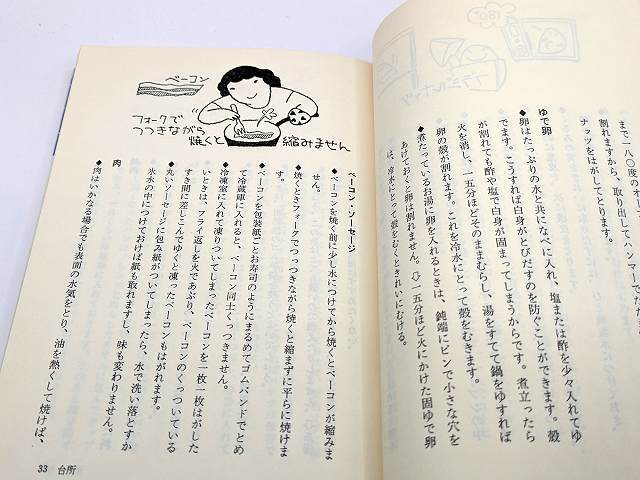 まで一八〇度のオー
割れますから、取り出してハンマーで
ナッツをはがしてとります。
ゆで卵
◆卵はたっぷりの水と共になべに入れ、塩または酢を少々入れてゆ
でます。こうすれば白身がとびだすのを防ぐことができます。殻
が割れても酢や塩で白身が固まってしまうからです。煮立ったら
火を消し、一五分ほどそのままむらし、湯をすてて鍋をゆすれば
卵の殻が割れます。これを冷水にとって殻をむきます。
◆煮たっているお湯に卵を入れるときは、鈍端にピンで小さな穴を
あけておくと卵は割れません。⇩一五分ほど火にかけた固ゆで卵
は、冷水にとって殻をむくときれいにむける。
ベーコン
フォークで
つつきながら
焼くと
縮みません
ベーコン・ソーセージ
◆ベーコンを焼く前に少し水につけてから焼くとベーコンが縮みま
せん。
◆焼くときフォークでつっつきながら焼くと縮まずに平らに焼けま
す。
◆ベーコンを包装紙ごとお寿司のようにまるめてゴムバンドでとめ
て冷蔵庫に入れると、ベーコン同士くっつきません。
◆冷凍室に入れて凍りついてしまったベーコンを一枚一枚はがした
いときは、フライ返しを火であぶり、ベーコンのくっついている
すき間に差しこんでゆくと凍ったベーコンもはがれます。
◆丸いソーセージに包み紙がついてしまったら、水で洗い落とすか
氷水の中につけておけば紙も取れますし、味も変わりません。
肉
◆肉はいかなる場合でも表面の水気をとり、油を熱くして焼けば、
33 台所